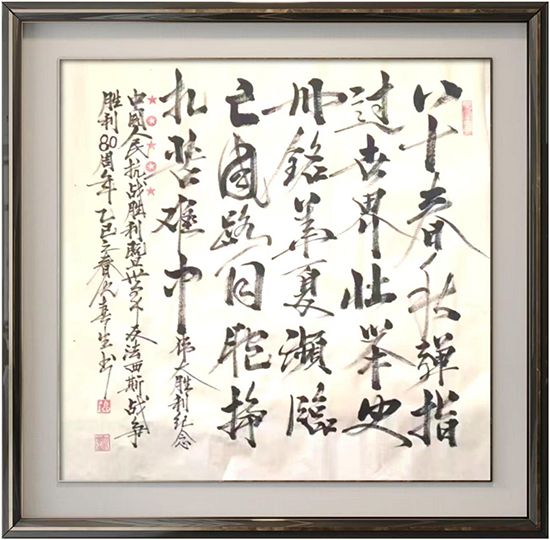 八十春秋弹指
过世界壮举史
册铭华夏濒臨
亡國路同胞挣
扎苦难中 伟大胜利纪念
中國人民抗战胜利暨世界反法西斯战争
胜利80周年乙巳立春 春生书